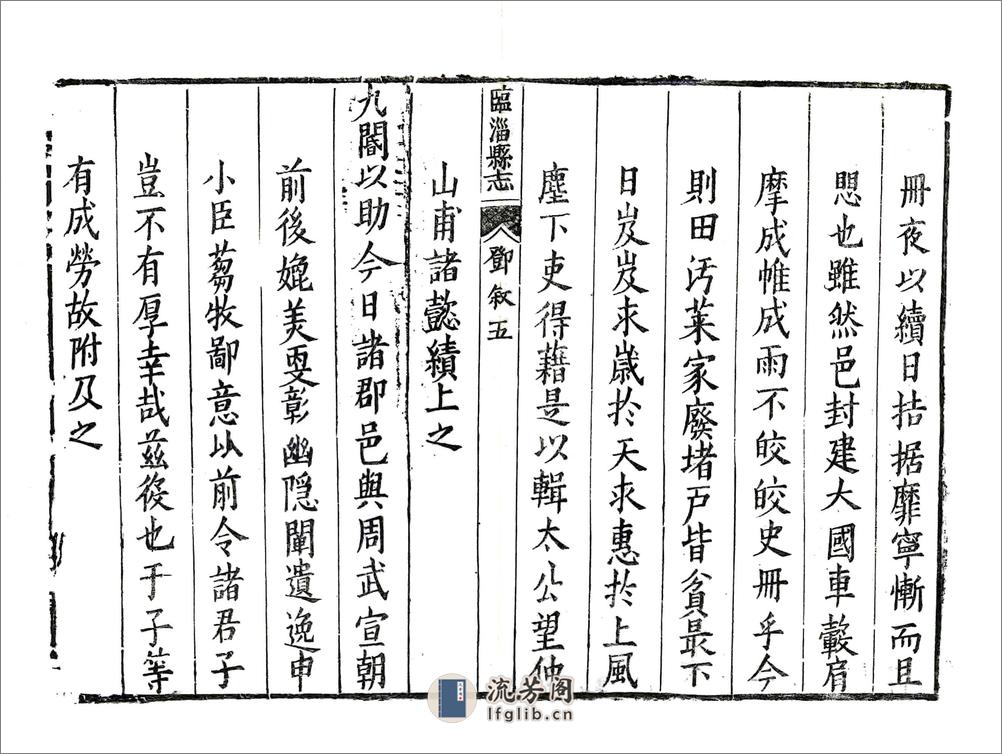 冊夜以續日拮据靡寧慚而且
愳也雖然邑封建大國車轂肩
摩成帷成雨不皎皎史冊乎今
則田汚萊家廢堵戸皆貧最下
日岌岌求歲扵天求惠扵上風
塵下吏得藉是以輯太公望仲
臨淄縣志
鄧叙五
山甫諸懿績上之
九閽以助今日諸郡邑與周武宣朝
前後媲美更彰幽隠闡遺逸申
小臣蒭牧鄙意以前令諸君子
豈不有厚幸哉茲役也于子等
有成勞故附及之
流芳阁
lfglib.cn